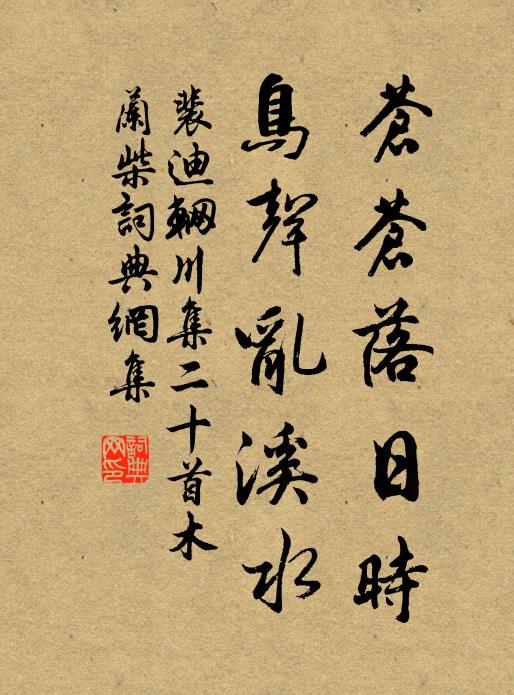 蒼蒼落日時
鳥聲亂溪水
裴迪輞川集二十首木
蘭柴詞典網集
詞典
网印